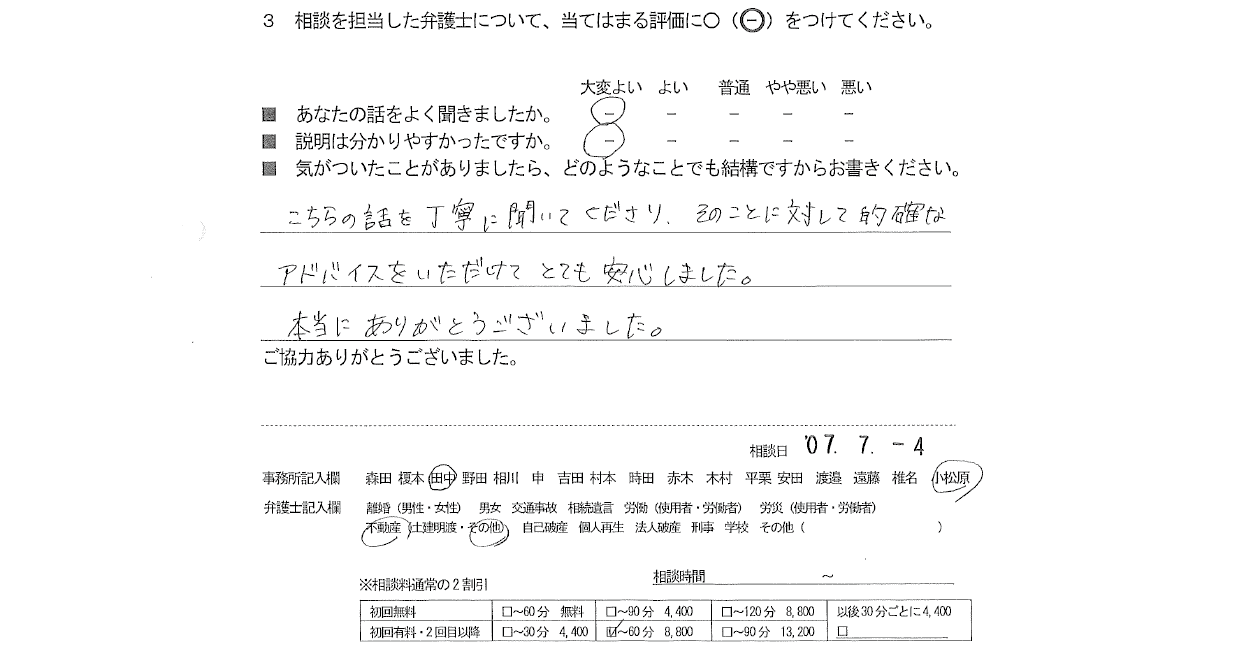 3 相談を担当した弁護士について、当てはまる評価に○（㊀）をつけてください。
大変よい よい 普通 やや悪い 悪い
■ あなたの話をよく聞きましたか。 － － － － －
■ 説明は分かりやすかったですか。 － － － － －
■ 気がついたことがありましたら、どのようなことでも結構ですからお書きください。
こちらの話を丁寧に聞いてくださり、そのことに対して的確な
アドバイスをいただけてとても安心しました。
本当にありがとうございました。
ご協力ありがとうございました。
相談日 '07. 7. -4
事務所記入欄 森田 榎本 田中 野田 相川 申 吉田 村本 時田 赤木 木村 平栗 安田 渡邉 遠藤 椎名 小松原
弁護士記入欄 離婚（男性・女性） 男女 交通事故 相続遺言 労働（使用者・労働者） 労災（使用者・労働者）
不動産（土建明渡・その他） 自己破産 個人再生 法人破産 刑事 学校 その他（ ）
相談時間 ～
※相談料通常の2割引
初回無料 □～60分 無料 □～90分 4,400 □～120分 8,800 以後30分ごとに4,400
初回有料・2回目以降 □～30分 4,400 ☑～60分 8,800 □～90分 13,200 □